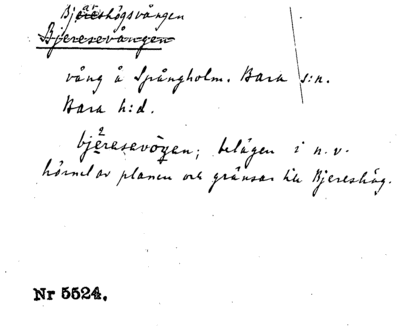 Bjäreshögsvången
Bjeresevången
vång å Spångholm. Bara s:n.
Bara h:d.
bjèresevöŋen; belägen i n.v.
hörnet av planen och gränsar till Bjereshög.
Nr 5524.